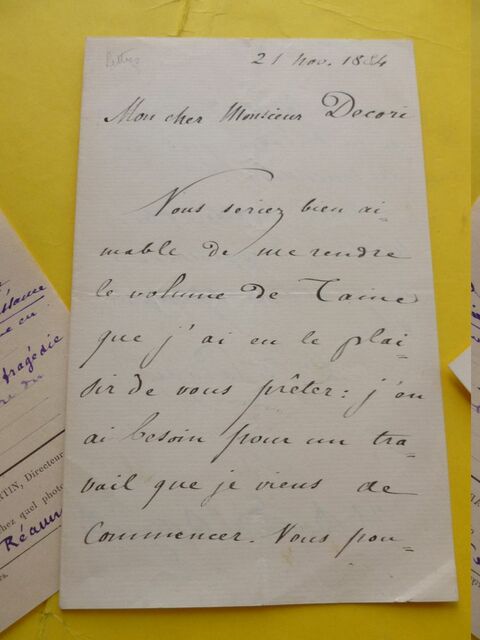 Lettres
21 nov. 1884
Mon cher Monsieur Decori
Vous seriez bien ai-
mable de me rendre
le volume de Taine
que j'ai eu le plai-
sir de vous prêter : j'en
ai besoin pour un tra-
vail que je viens de
commencer. Vous pou-
tragédie
TIN, Directeur
chez quel photo
Réaum